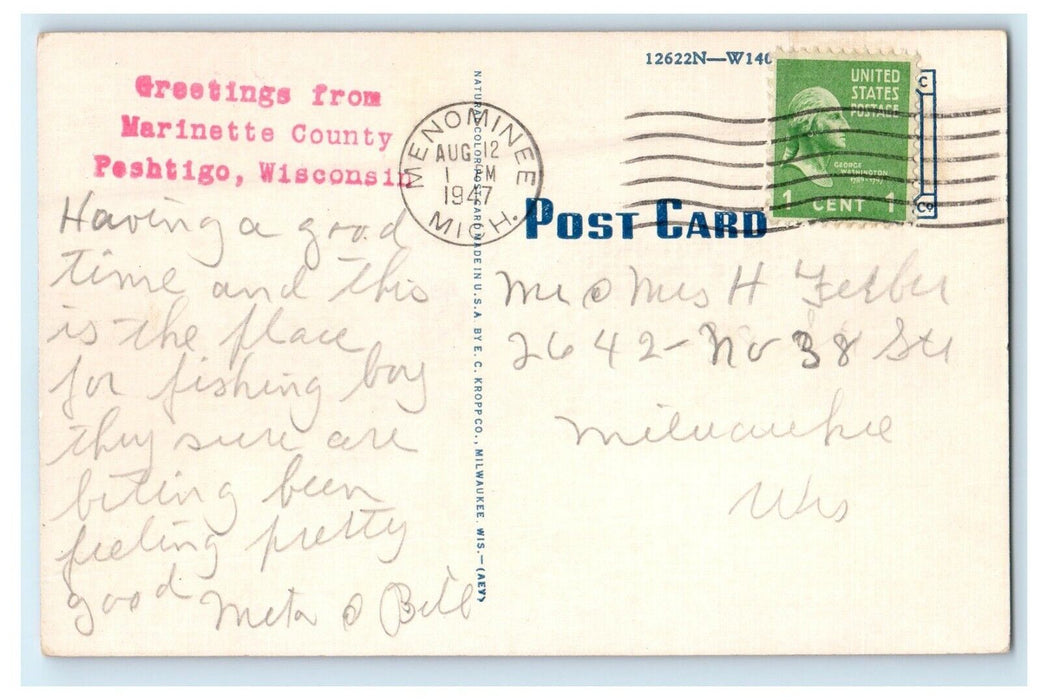 Greetings from
Marinette County
Peshtigo, Wisconsin
Having a good
time and this
is the place
for fishing boy
they sure are
biting been
feeling pretty
good Meta & Bill
NATURAL COLOR POST CARD MADE IN U.S.A. BY E. C. KROPP CO., MILWAUKEE, WIS.—(AEV)
MENOMINEE
AUG 12
1 M
1947
MICH.
12622N—W140
UNITED
STATES
POSTAGE
GEORGE
WASHINGTON
1 CENT 1
C
Co
POST CARD
Mr & Mrs H
2642-No 38 Str
Milwaukee
Wis